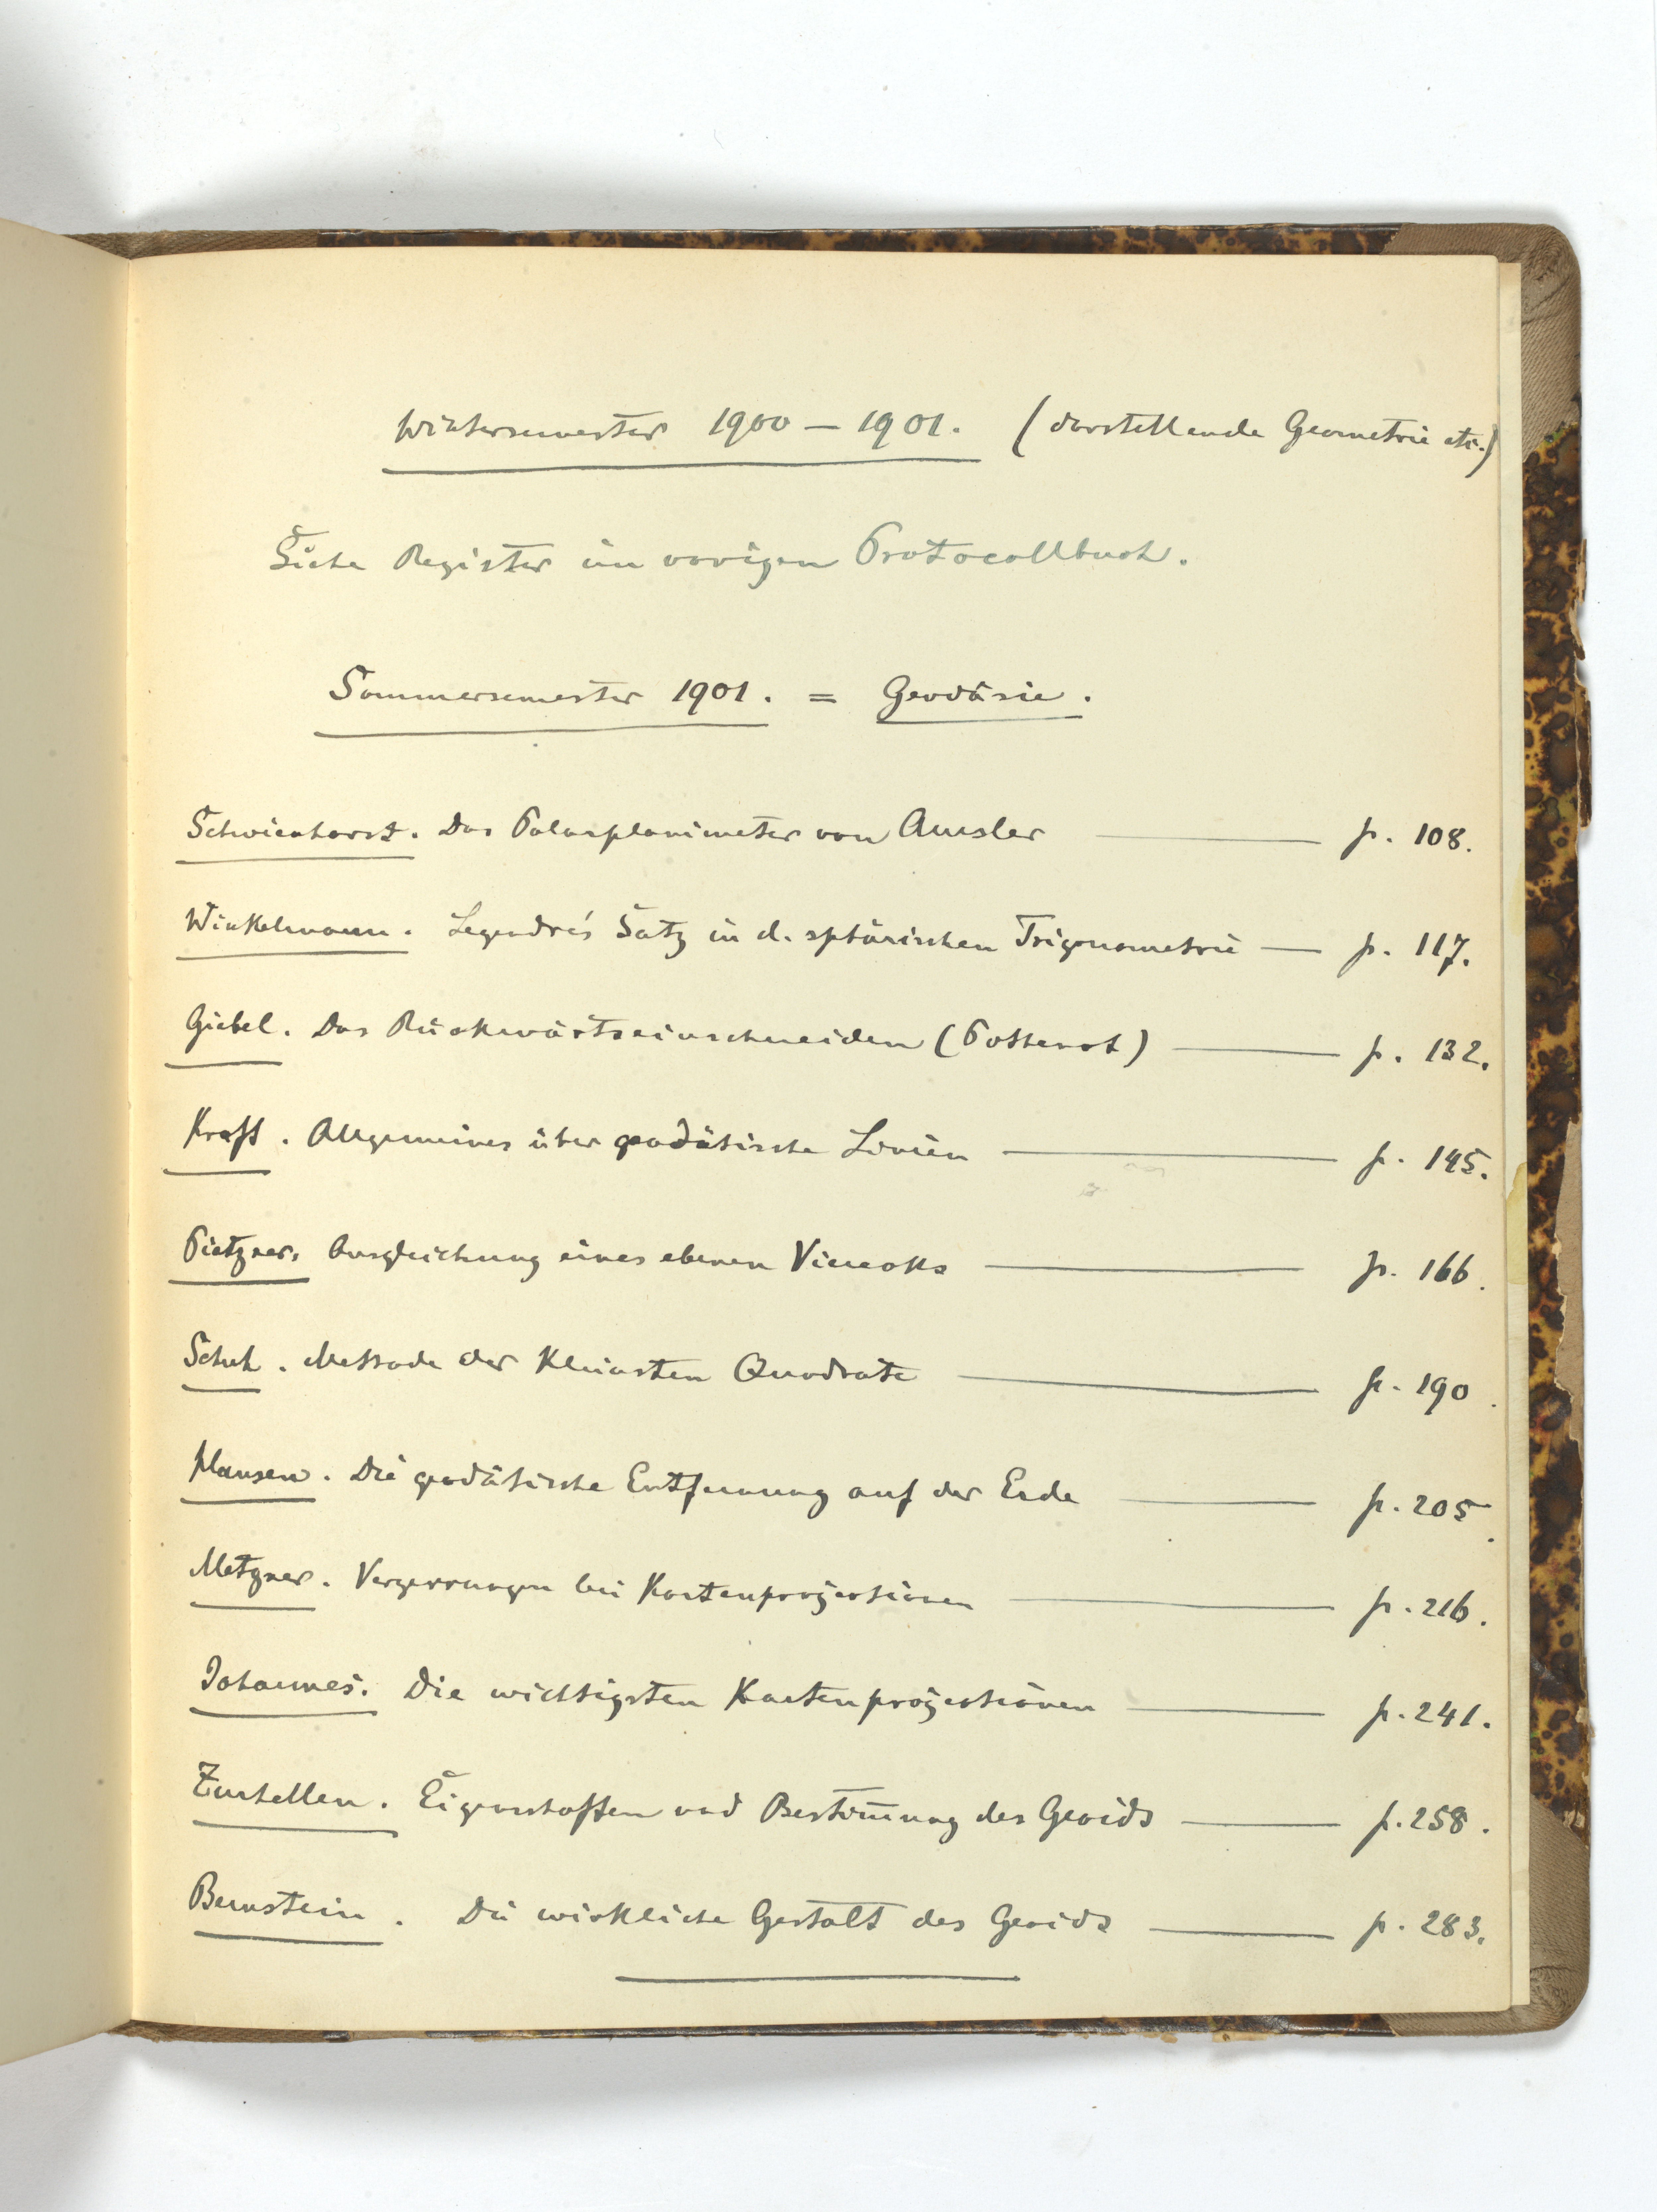 Wintersemester 1900 – 1901. (darstellende Geometrie etc.)
Siehe Register im vorigen Protocollbuch.
Sommersemester 1901. = Geodäsie.
Schwienhorst. Das Polarplanimeter von Amsler — p. 108.
Winkelmann. Legendre's Satz in d. sphärischen Trigonometrie — p. 117.
Giebel. Das Rückwärtseinschneiden (Pothenot) — p. 132.
Kraft. Allgemeines über geodätische Linien — p. 145.
Pietzner. Ausgleichung eines ebenen Vierecks — p. 166.
Schuh. Methode der Kleinsten Quadrate — p. 190.
Hansen. Die geodätische Entfernung auf der Erde — p. 205.
Metzner. Verzerrungen bei Kartenprojectionen — p. 216.
Johannes. Die wichtigsten Kartenprojectionen — p. 241.
Zurhellen. Eigenschaften und Bestim̄ung des Geoids — p. 258.
Bernstein. Die wirkliche Gestalt des Geoids — p. 283.